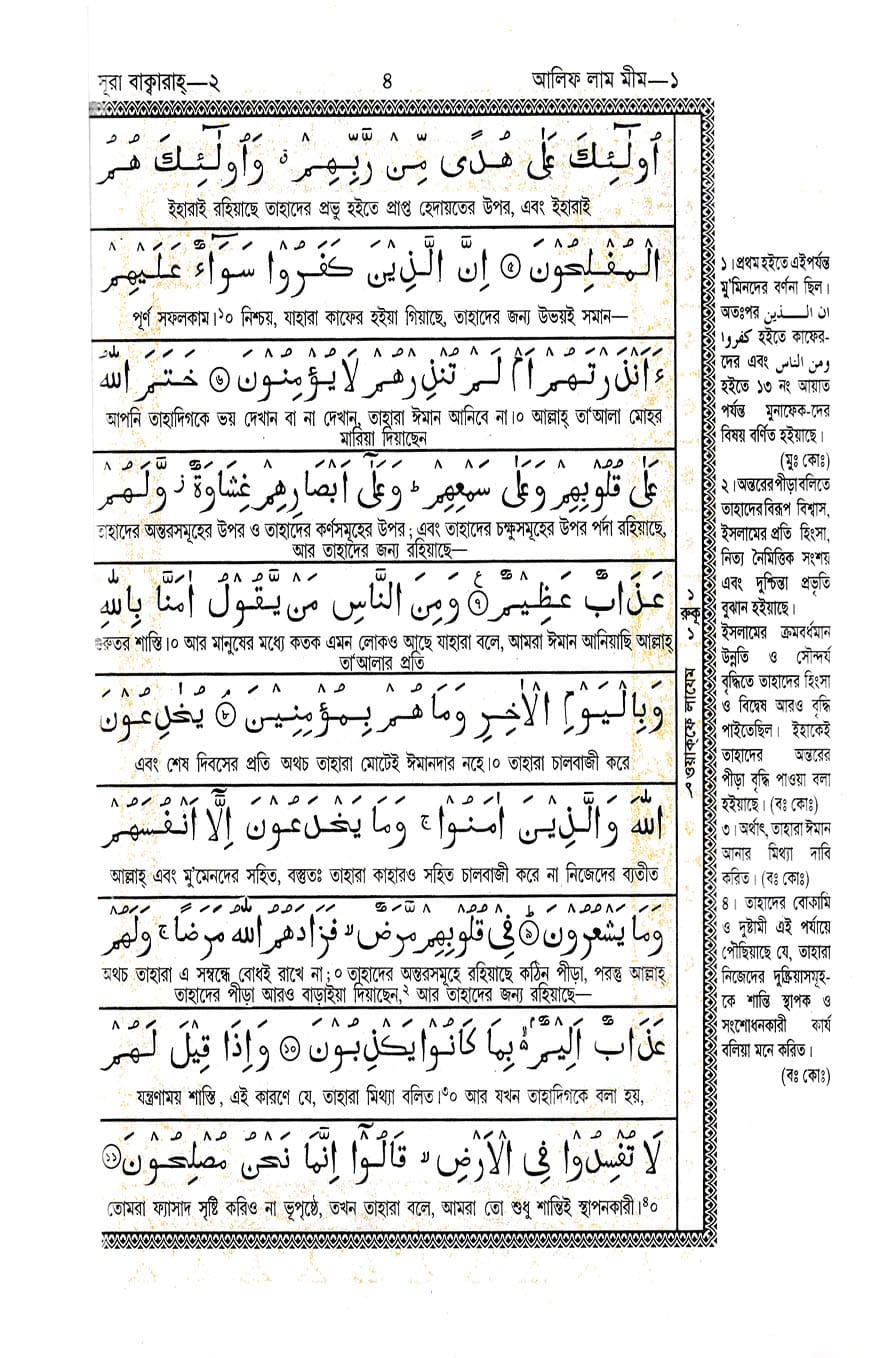 সূরা বাক্বারাহ্—২ ৪ আলিফ লাম মীম—১
اُولٰٓئِكَ عَلٰى هُدًى مِّنْ رَّبِّهِمْ ۙ وَاُولٰٓئِكَ هُمُ
ইহারাই রহিয়াছে তাহাদের প্রভু হইতে প্রাপ্ত হেদায়তের উপর, এবং ইহারাই
الْمُفْلِحُوْنَ ۝৫ اِنَّ الَّذِيْنَ كَفَرُوْا سَوَآءٌ عَلَيْهِمْ
পূর্ণ সফলকাম।১০ নিশ্চয়, যাহারা কাফের হইয়া গিয়াছে, তাহাদের জন্য উভয়ই সমান—
ءَاَنْذَرْتَهُمْ اَمْ لَمْ تُنْذِرْهُمْ لَا يُؤْمِنُوْنَ ۝৬ خَتَمَ اللّٰهُ
আপনি তাহাদিগকে ভয় দেখান বা না দেখান, তাহারা ঈমান আনিবে না।০ আল্লাহ্ তা'আলা মোহর
মারিয়া দিয়াছেন
عَلٰى قُلُوْبِهِمْ وَعَلٰى سَمْعِهِمْ ؕ وَعَلٰٓى اَبْصَارِهِمْ غِشَاوَةٌ ز وَّلَهُمْ
তাহাদের অন্তরসমূহের উপর ও তাহাদের কর্ণসমূহের উপর ; এবং তাহাদের চক্ষুসমূহের উপর পর্দা রহিয়াছে,
আর তাহাদের জন্য রহিয়াছে—
عَذَابٌ عَظِيْمٌ ۝৭ ع وَمِنَ النَّاسِ مَنْ يَّقُوْلُ اٰمَنَّا بِاللّٰهِ
গুরুতর শাস্তি।০ আর মানুষের মধ্যে কতক এমন লোকও আছে যাহারা বলে, আমরা ঈমান আনিয়াছি আল্লাহ্
তা'আলার প্রতি
وَبِالْيَوْمِ الْاٰخِرِ وَمَا هُمْ بِمُؤْمِنِيْنَ ۝৮ يُخٰدِعُوْنَ
এবং শেষ দিবসের প্রতি অথচ তাহারা মোটেই ঈমানদার নহে।০ তাহারা চালবাজী করে
اللّٰهَ وَالَّذِيْنَ اٰمَنُوْا ۚ وَمَا يَخْدَعُوْنَ اِلَّآ اَنْفُسَهُمْ
আল্লাহ্ এবং মু'মেনদের সহিত, বস্তুতঃ তাহারা কাহারও সহিত চালবাজী করে না নিজেদের ব্যতীত
وَمَا يَشْعُرُوْنَ ۝৯ فِيْ قُلُوْبِهِمْ مَّرَضٌ ۙ فَزَادَهُمُ اللّٰهُ مَرَضًا ۚ وَلَهُمْ
অথচ তাহারা এ সম্বন্ধে বোধই রাখে না ;০ তাহাদের অন্তরসমূহে রহিয়াছে কঠিন পীড়া, পরন্তু আল্লাহ্
তাহাদের পীড়া আরও বাড়াইয়া দিয়াছেন,২ আর তাহাদের জন্য রহিয়াছে—
عَذَابٌ اَلِيْمٌۢ بِمَا كَانُوْا يَكْذِبُوْنَ ۝১০ وَاِذَا قِيْلَ لَهُمْ
যন্ত্রণাময় শাস্তি, এই কারণে যে, তাহারা মিথ্যা বলিত।৩০ আর যখন তাহাদিগকে বলা হয়,
لَا تُفْسِدُوْا فِي الْاَرْضِ ۙ قَالُوْٓا اِنَّمَا نَحْنُ مُصْلِحُوْنَ ۝১১
তোমরা ফ্যাসাদ সৃষ্টি করিও না ভূপৃষ্ঠে, তখন তাহারা বলে, আমরা তো শুধু শান্তিই স্থাপনকারী।৪০
রুকূ ১
ওয়াক্ফে লাযেম
১। প্রথম হইতে এইপর্যন্ত
মু'মিনদের বর্ণনা ছিল।
অতঃপর ان الــذين
كفروا হইতে কাফের-
দের এবং ومن الناس
হইতে ১৩ নং আয়াত
পর্যন্ত মুনাফেক-দের
বিষয় বর্ণিত হইয়াছে।
(মুঃ কোঃ)
২। অন্তরের পীড়া বলিতে
তাহাদের বিরূপ বিশ্বাস,
ইসলামের প্রতি হিংসা,
নিত্য নৈমিত্তিক সংশয়
এবং দুশ্চিন্তা প্রভৃতি
বুঝান হইয়াছে।
ইসলামের ক্রমবর্ধমান
উন্নতি ও সৌন্দর্য
বৃদ্ধিতে তাহাদের হিংসা
ও বিদ্বেষ আরও বৃদ্ধি
পাইতেছিল। ইহাকেই
তাহাদের অন্তরের
পীড়া বৃদ্ধি পাওয়া বলা
হইয়াছে। (বঃ কোঃ)
৩। অর্থাৎ, তাহারা ঈমান
আনার মিথ্যা দাবি
করিত। (বঃ কোঃ)
৪। তাহাদের বোকামি
ও দুষ্টামী এই পর্যায়ে
পৌঁছিয়াছে যে, তাহারা
নিজেদের দুষ্ক্রিয়াসমূহ-
কে শান্তি স্থাপক ও
সংশোধনকারী কার্য
বলিয়া মনে করিত।
(বঃ কোঃ)